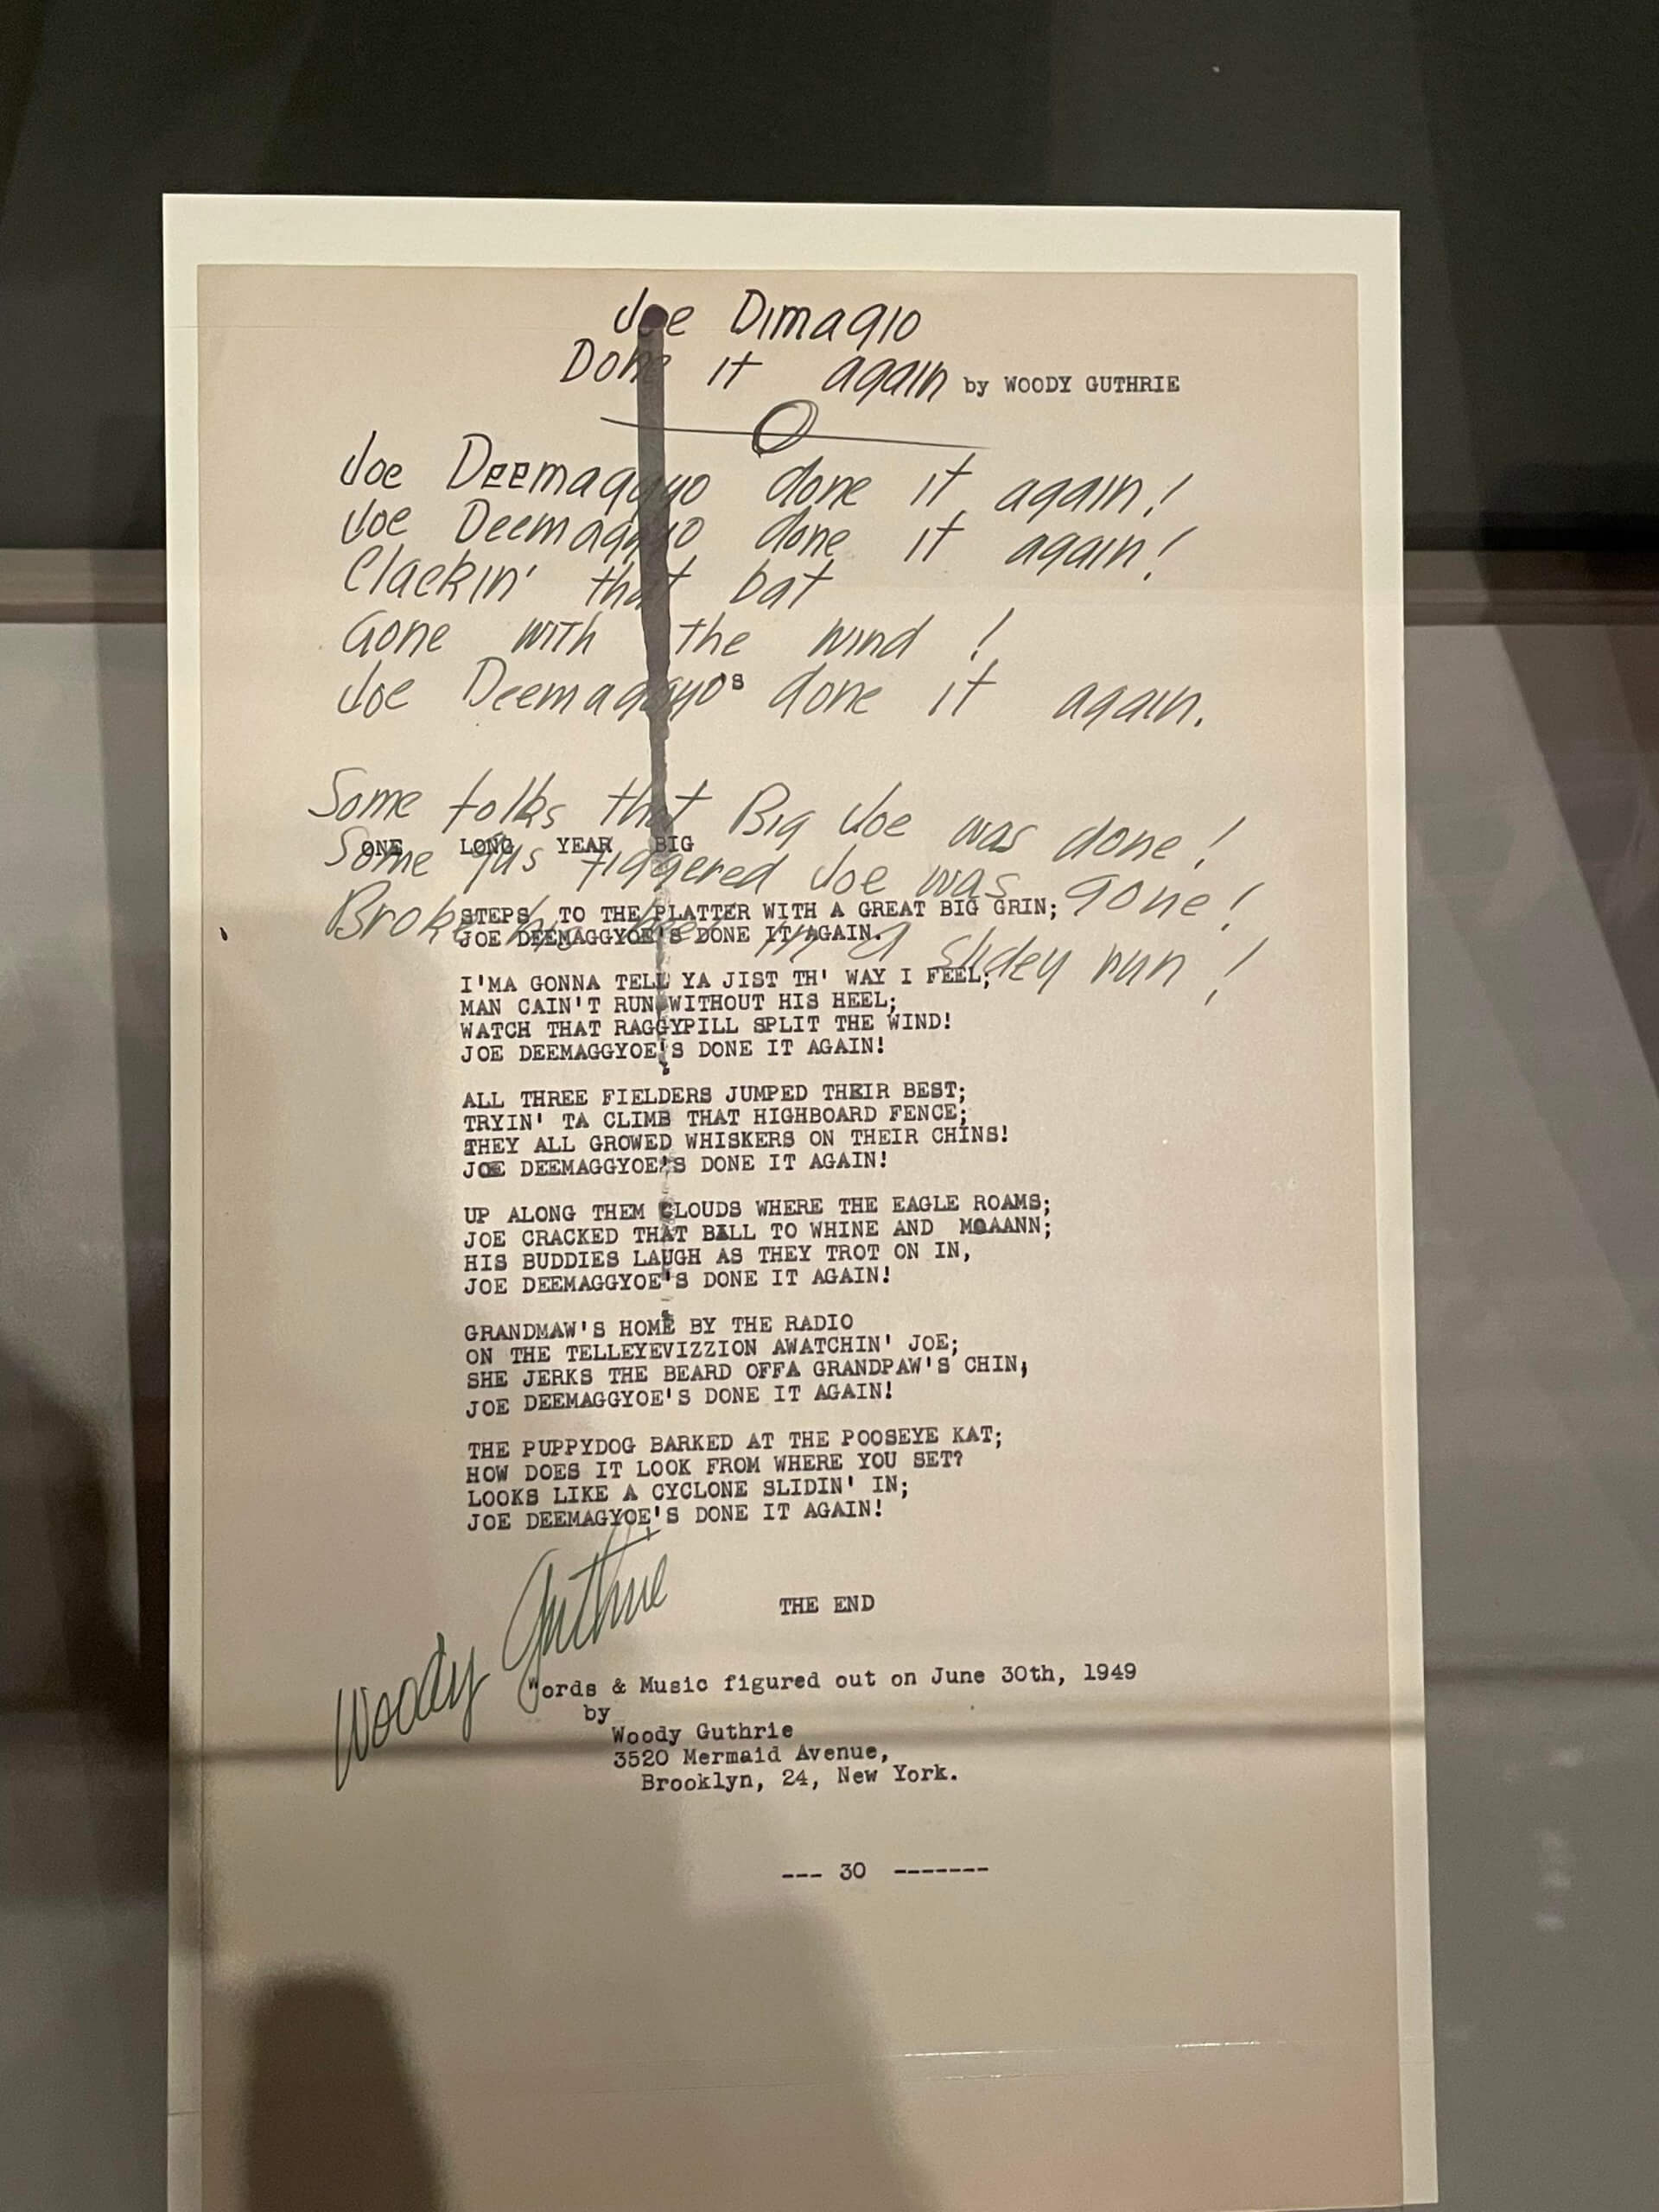 Joe Dimagio
Done it again by WOODY GUTHRIE
Joe Deemaggyo done it again!
Joe Deemaggyo done it again!
Clackin' that bat
Gone with the wind!
Joe Deemaggyo's done it again.
Some folks that Big Joe was done!
Some figgered Joe was gone!
ONE LONG YEAR BIG
Broke his heel in a slidey run!
STEPS TO THE PLATTER WITH A GREAT BIG GRIN;
JOE DEEMAGGYOE'S DONE IT AGAIN.
I'MA GONNA TELL YA JIST TH' WAY I FEEL;
MAN CAIN'T RUN WITHOUT HIS HEEL;
WATCH THAT RAGGYPILL SPLIT THE WIND!
JOE DEEMAGGYOE'S DONE IT AGAIN!
ALL THREE FIELDERS JUMPED THEIR BEST;
TRYIN' TA CLIMB THAT HIGHBOARD FENCE;
THEY ALL GROWED WHISKERS ON THEIR CHINS!
JOE DEEMAGGYOE'S DONE IT AGAIN!
UP ALONG THEM CLOUDS WHERE THE EAGLE ROAMS;
JOE CRACKED THAT BALL TO WHINE AND MOAANN;
HIS BUDDIES LAUGH AS THEY TROT ON IN,
JOE DEEMAGGYOE'S DONE IT AGAIN!
GRANDMAW'S HOME BY THE RADIO
ON THE TELLEYEVIZZION AWATCHIN' JOE;
SHE JERKS THE BEARD OFFA GRANDPAW'S CHIN,
JOE DEEMAGGYOE'S DONE IT AGAIN!
THE PUPPYDOG BARKED AT THE POOSEYE KAT;
HOW DOES IT LOOK FROM WHERE YOU SET?
LOOKS LIKE A CYCLONE SLIDIN' IN;
JOE DEEMAGYOE'S DONE IT AGAIN!
Woody Guthrie
THE END
Words & Music figured out on June 30th, 1949
by
Woody Guthrie
3520 Mermaid Avenue,
Brooklyn, 24, New York.
--- 30 -------